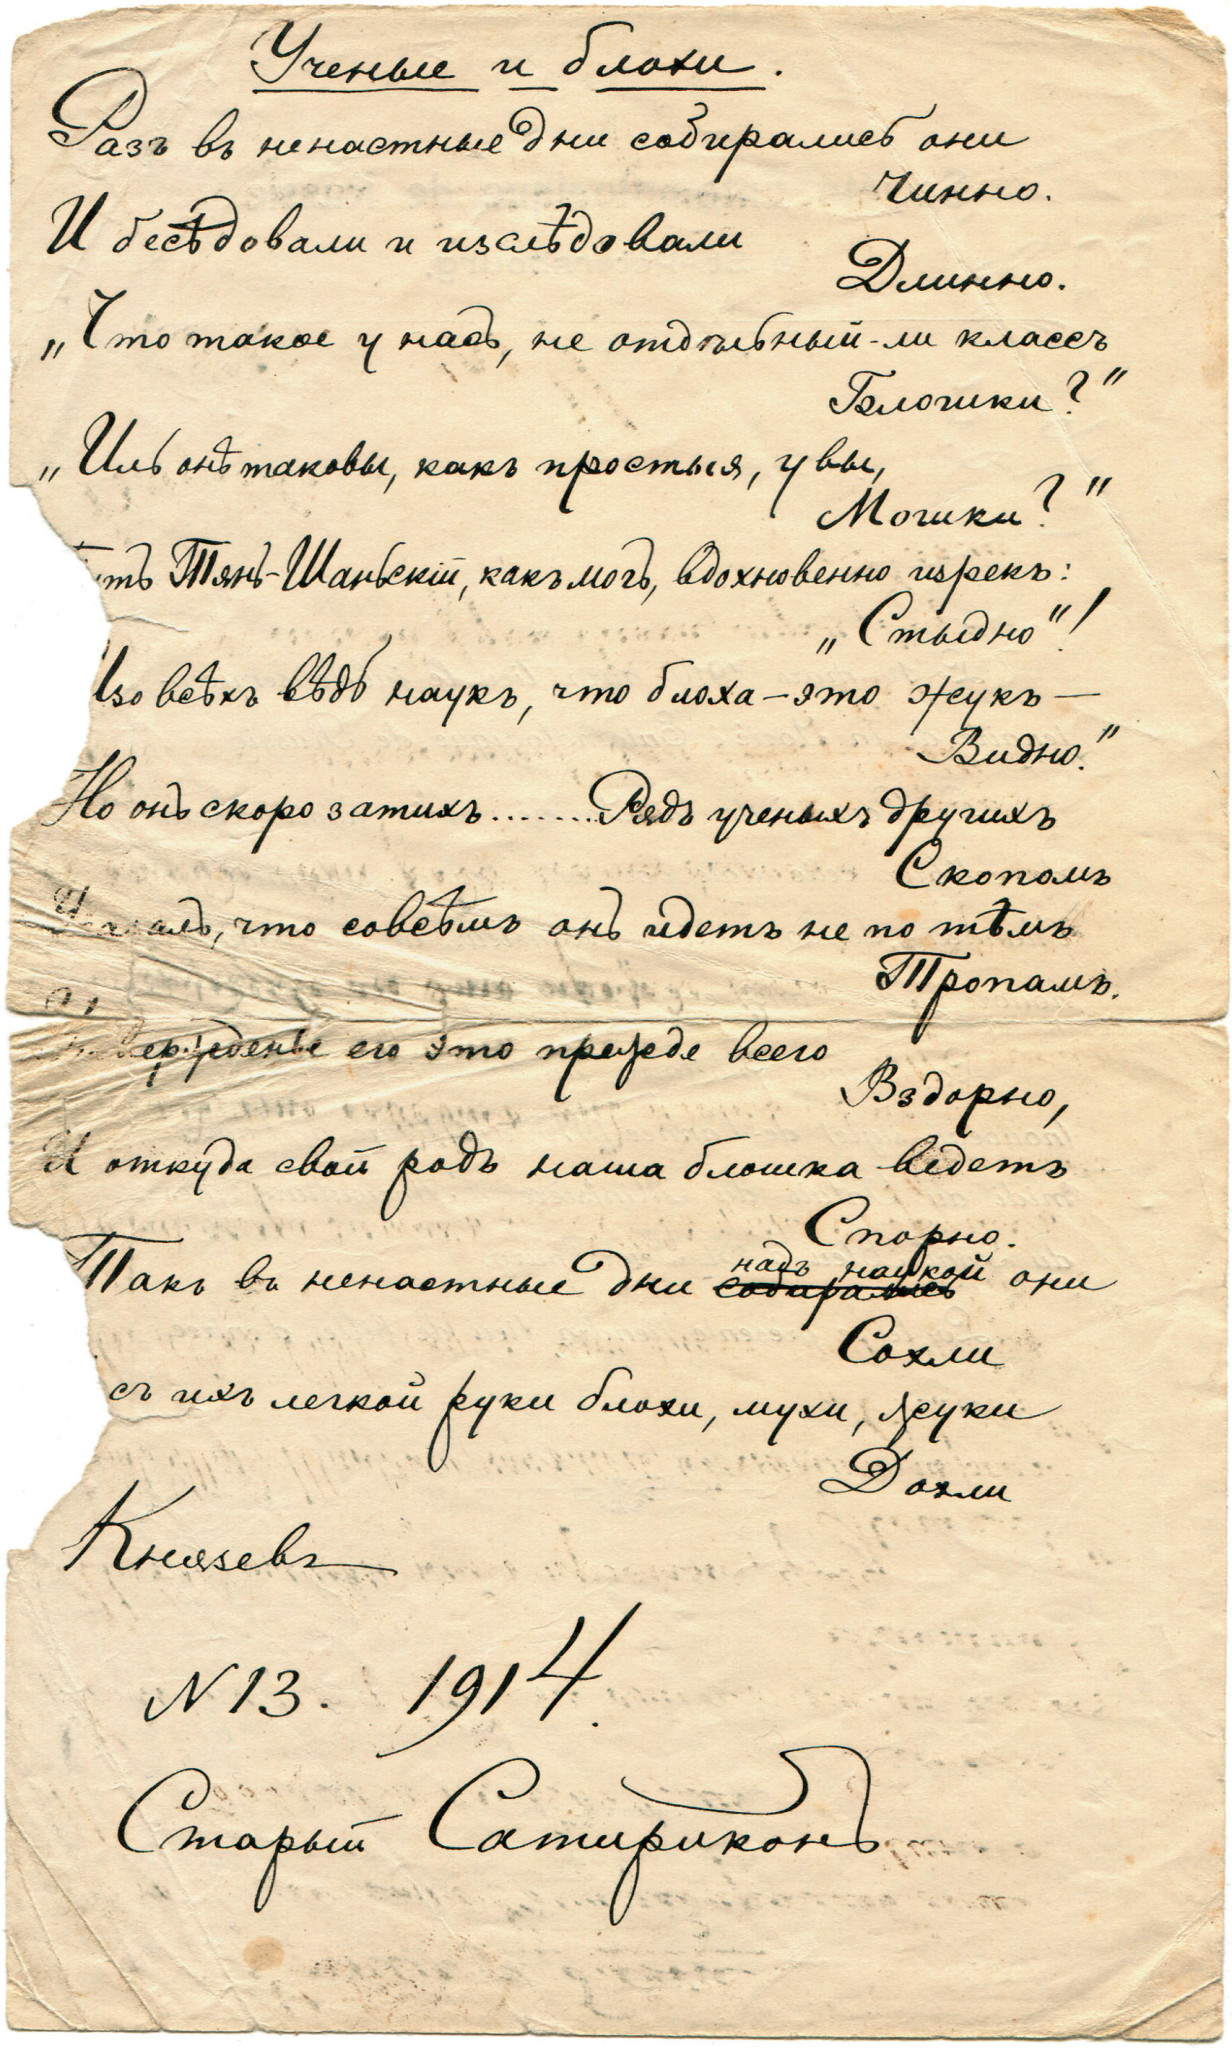 Ученые и блохи.
Разъ въ ненастные дни собирались они
Чинно.
И бесѣдовали и изслѣдовали
Длинно.
„Что такое у насъ, не отдѣльный-ли классъ
Блошки?"
„Иль онѣ таковы, какъ простыя, увы,
Мошки?"
утъ Тянь-Шаньскій, какъ могъ, вдохновенно изрекъ:
„Стыдно"!
Изо всѣхъ вѣдь наукъ, что блоха – это жукъ –
Видно."
Но онъ скоро затихъ....... Рядъ ученыхъ другихъ
Скопомъ
что совсѣмъ онъ идетъ не по тѣмъ
Тропамъ.
его это прежде всего
Вздорно,
И откуда свой родъ наша блошка ведетъ
Спорно.
Такъ въ ненастные дни собирались надъ наукой они
Сохли
съ ихъ легкой руки блохи, мухи, жуки
Дохли
Князевъ
N 13. 1914.
Старый Сатириконъ